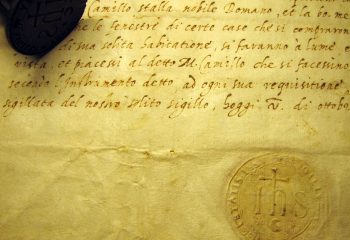 Camillo stalla nobile Romano, et la bo. me
le fenestre di certe case che si comprorono
di sua solita habitatione, si faranno à lume, e
uista, et piacesi al detto M. Camillo che si facessino
secondo l'Instrumento detto, ad ogni sua requisitione
sigillata del nostro solito sigillo, hoggi di ottobre
IHS